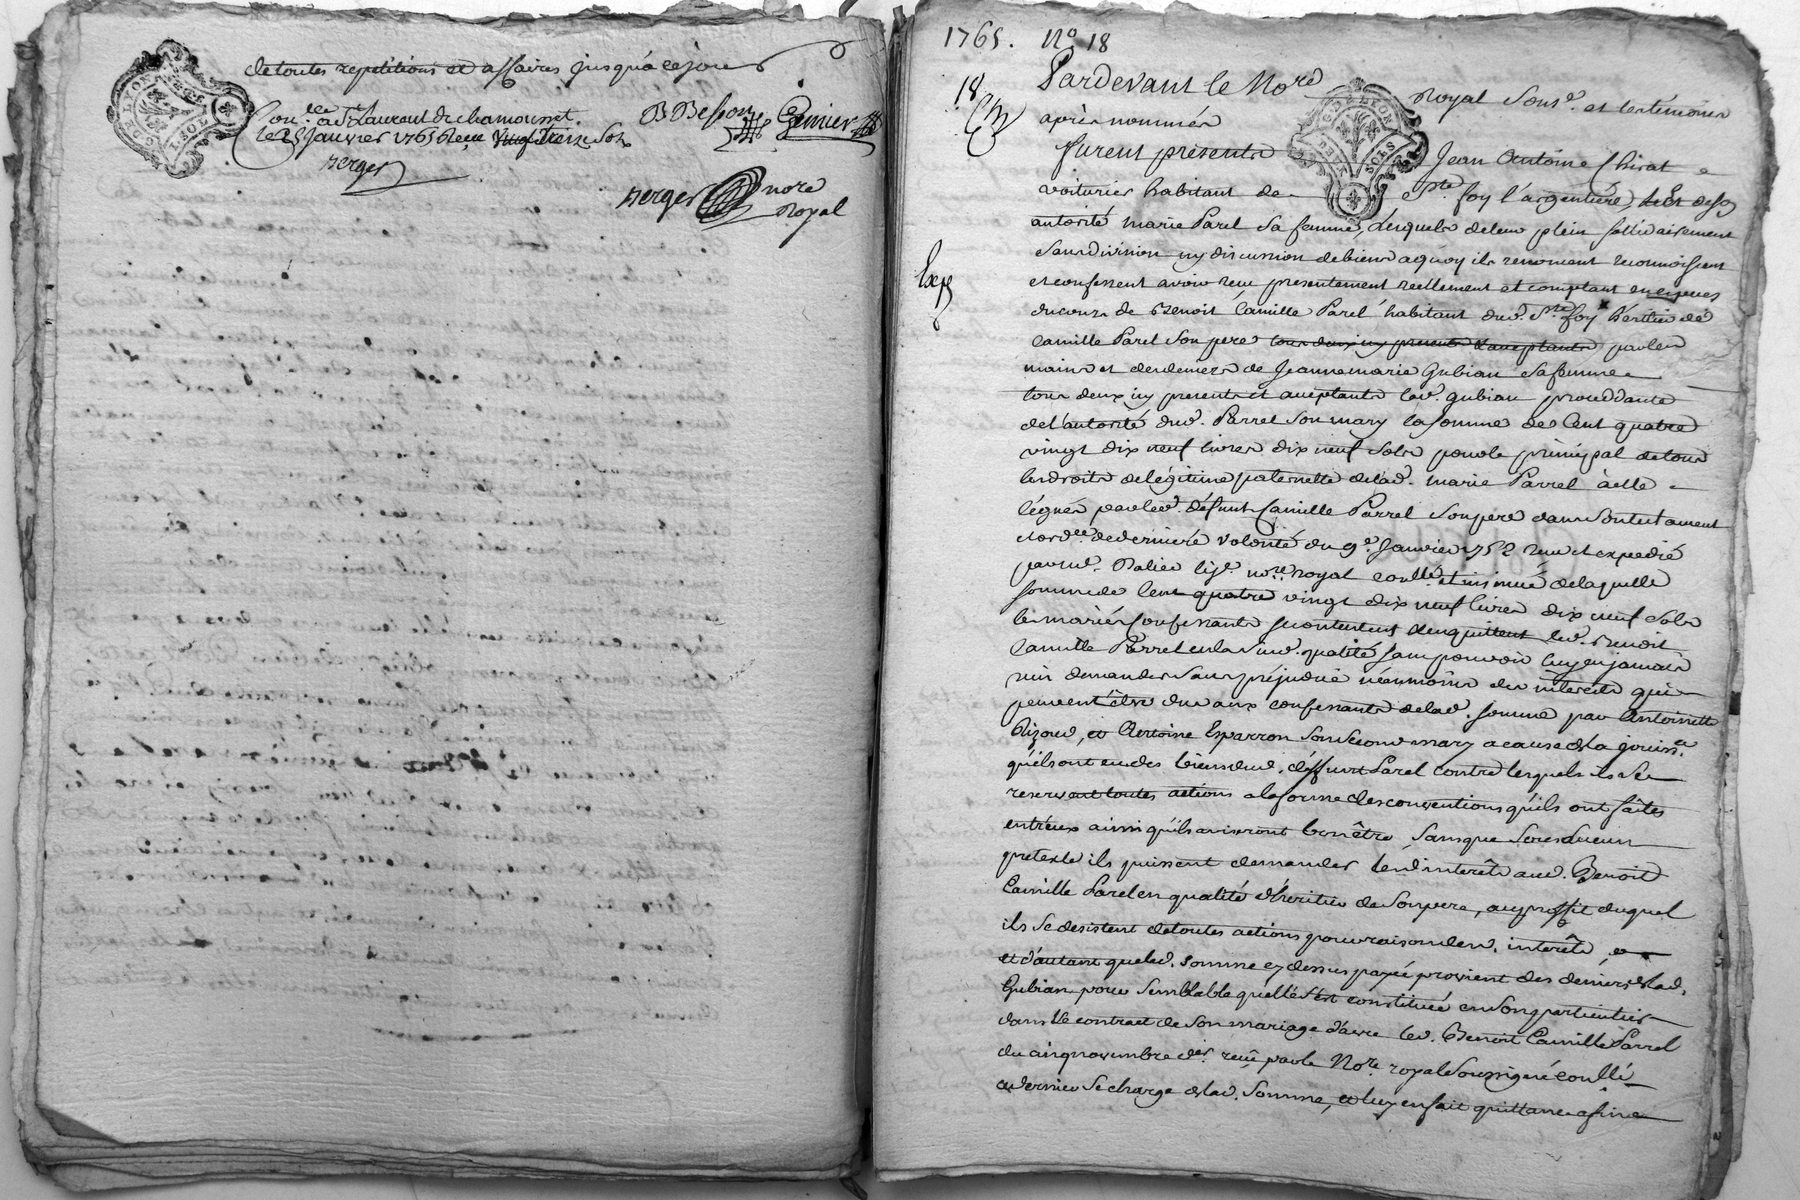 de toutes repetitions et affaires jusqu'a ce jour
GEN DE LYON
DEUX SOLS
Con.lée a St Laurent de chamousset
le 25 janvier 1765 Reçu treize Sols
Berger
B Besson Grenier
Berger nore
Royal
1765. No. 18
18
Pardevant le Nore Royal Sousé. et les témoins
après nommés
GEN DE LYON
DEUX SOLS
furent présents Jean Antoine Chirat
voiturier habitant de Ste. foy l'argentiére & de son
autorité marie Parel Sa femme, lesquels de leur plein sollidairement
Sans division ny discussion de biens aquoy ils renoncent reconnoissent
Exp
et confessent avoir reçu presentement reellement et comptant en especes
du cours de Benoit Camille Parel habitant dud. Ste foy héritier de
Camille Parel Son pere tous deux icy presents & acceptants par les
mains et des deniers de Jeanne marie Gubian Sa femme
tous deux icy presents et acceptants lad. gubian proceddante
de l'autorité dud. Parrel Son mary la somme de Cent quatre
vingt dix neuf livres dix neuf Sols pour le principal de tous
les droits de légitime paternelle de lad. marie Parrel à elle
légués par led. défunt Camille Parrel Son pere dans Son testament
et ordce de derniere volonté du 9e. Janvier 1752 reçu et expedié
par me. nore royal conllé et insinué de laquelle
somme de Cent quatre vingt dix neuf livres dix neuf Sols
les mariés confessants se contentent & en quittent led. Benoit
Camille Parrel en la Susd. qualité sans pouvoir luy en jamais
rien demander Sans préjudice néanmoins des interets qui
peuvent être dus aux confessants de lad. somme par Antoinette
et Antoine Esparron Son Second mary a cause de la jouissce
qu'ils ont eu des biens dud. déffunt Parel contre lesquels ils Se
reservent toutes actions a la forme des conventions qu'ils ont faites
entr'eux ainsi qu'ils aviseront bon être Sans que Sous aucun
pretexte ils puissent demander led. interêts aud. Benoit
Camille Parel en qualité d'heritier de Son pere, au proffit duquel
ils Se desistent de toutes actions pour raison desd. interêts,
et d'autant que lad. Somme cy dessus payée provient des deniers de lad.
Gubian pour Semblable qu'elle S'est constituée en Son particulier
dans le contract de Son mariage d'avec led. Benoit Camille Parrel
du cinq novembre der. reçu par le Nore. royal Soussigné conllé
ce dernier Se charge de lad. Somme, et luy en fait quittance afin